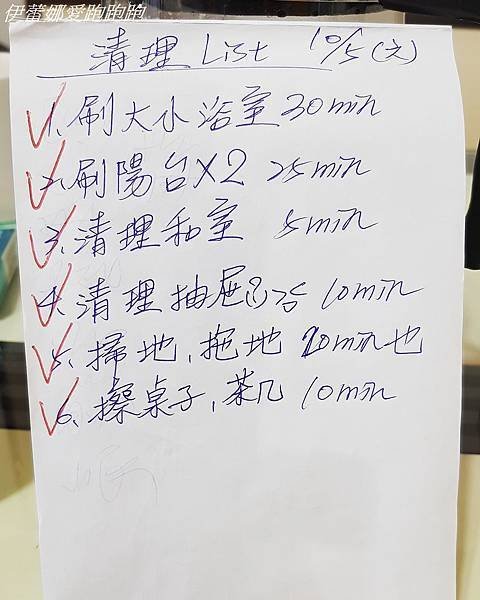 伊蕾娜愛跑跑跑
清理 List 10/5 (六)
1. 刷大小浴室 30 min
2. 刷陽台x2 25 min
3. 清理和室 5 min
4. 清理抽屜 10 min
5. 掃地, 拖地 20 min 也
6. 擦桌子, 茶几 10 min